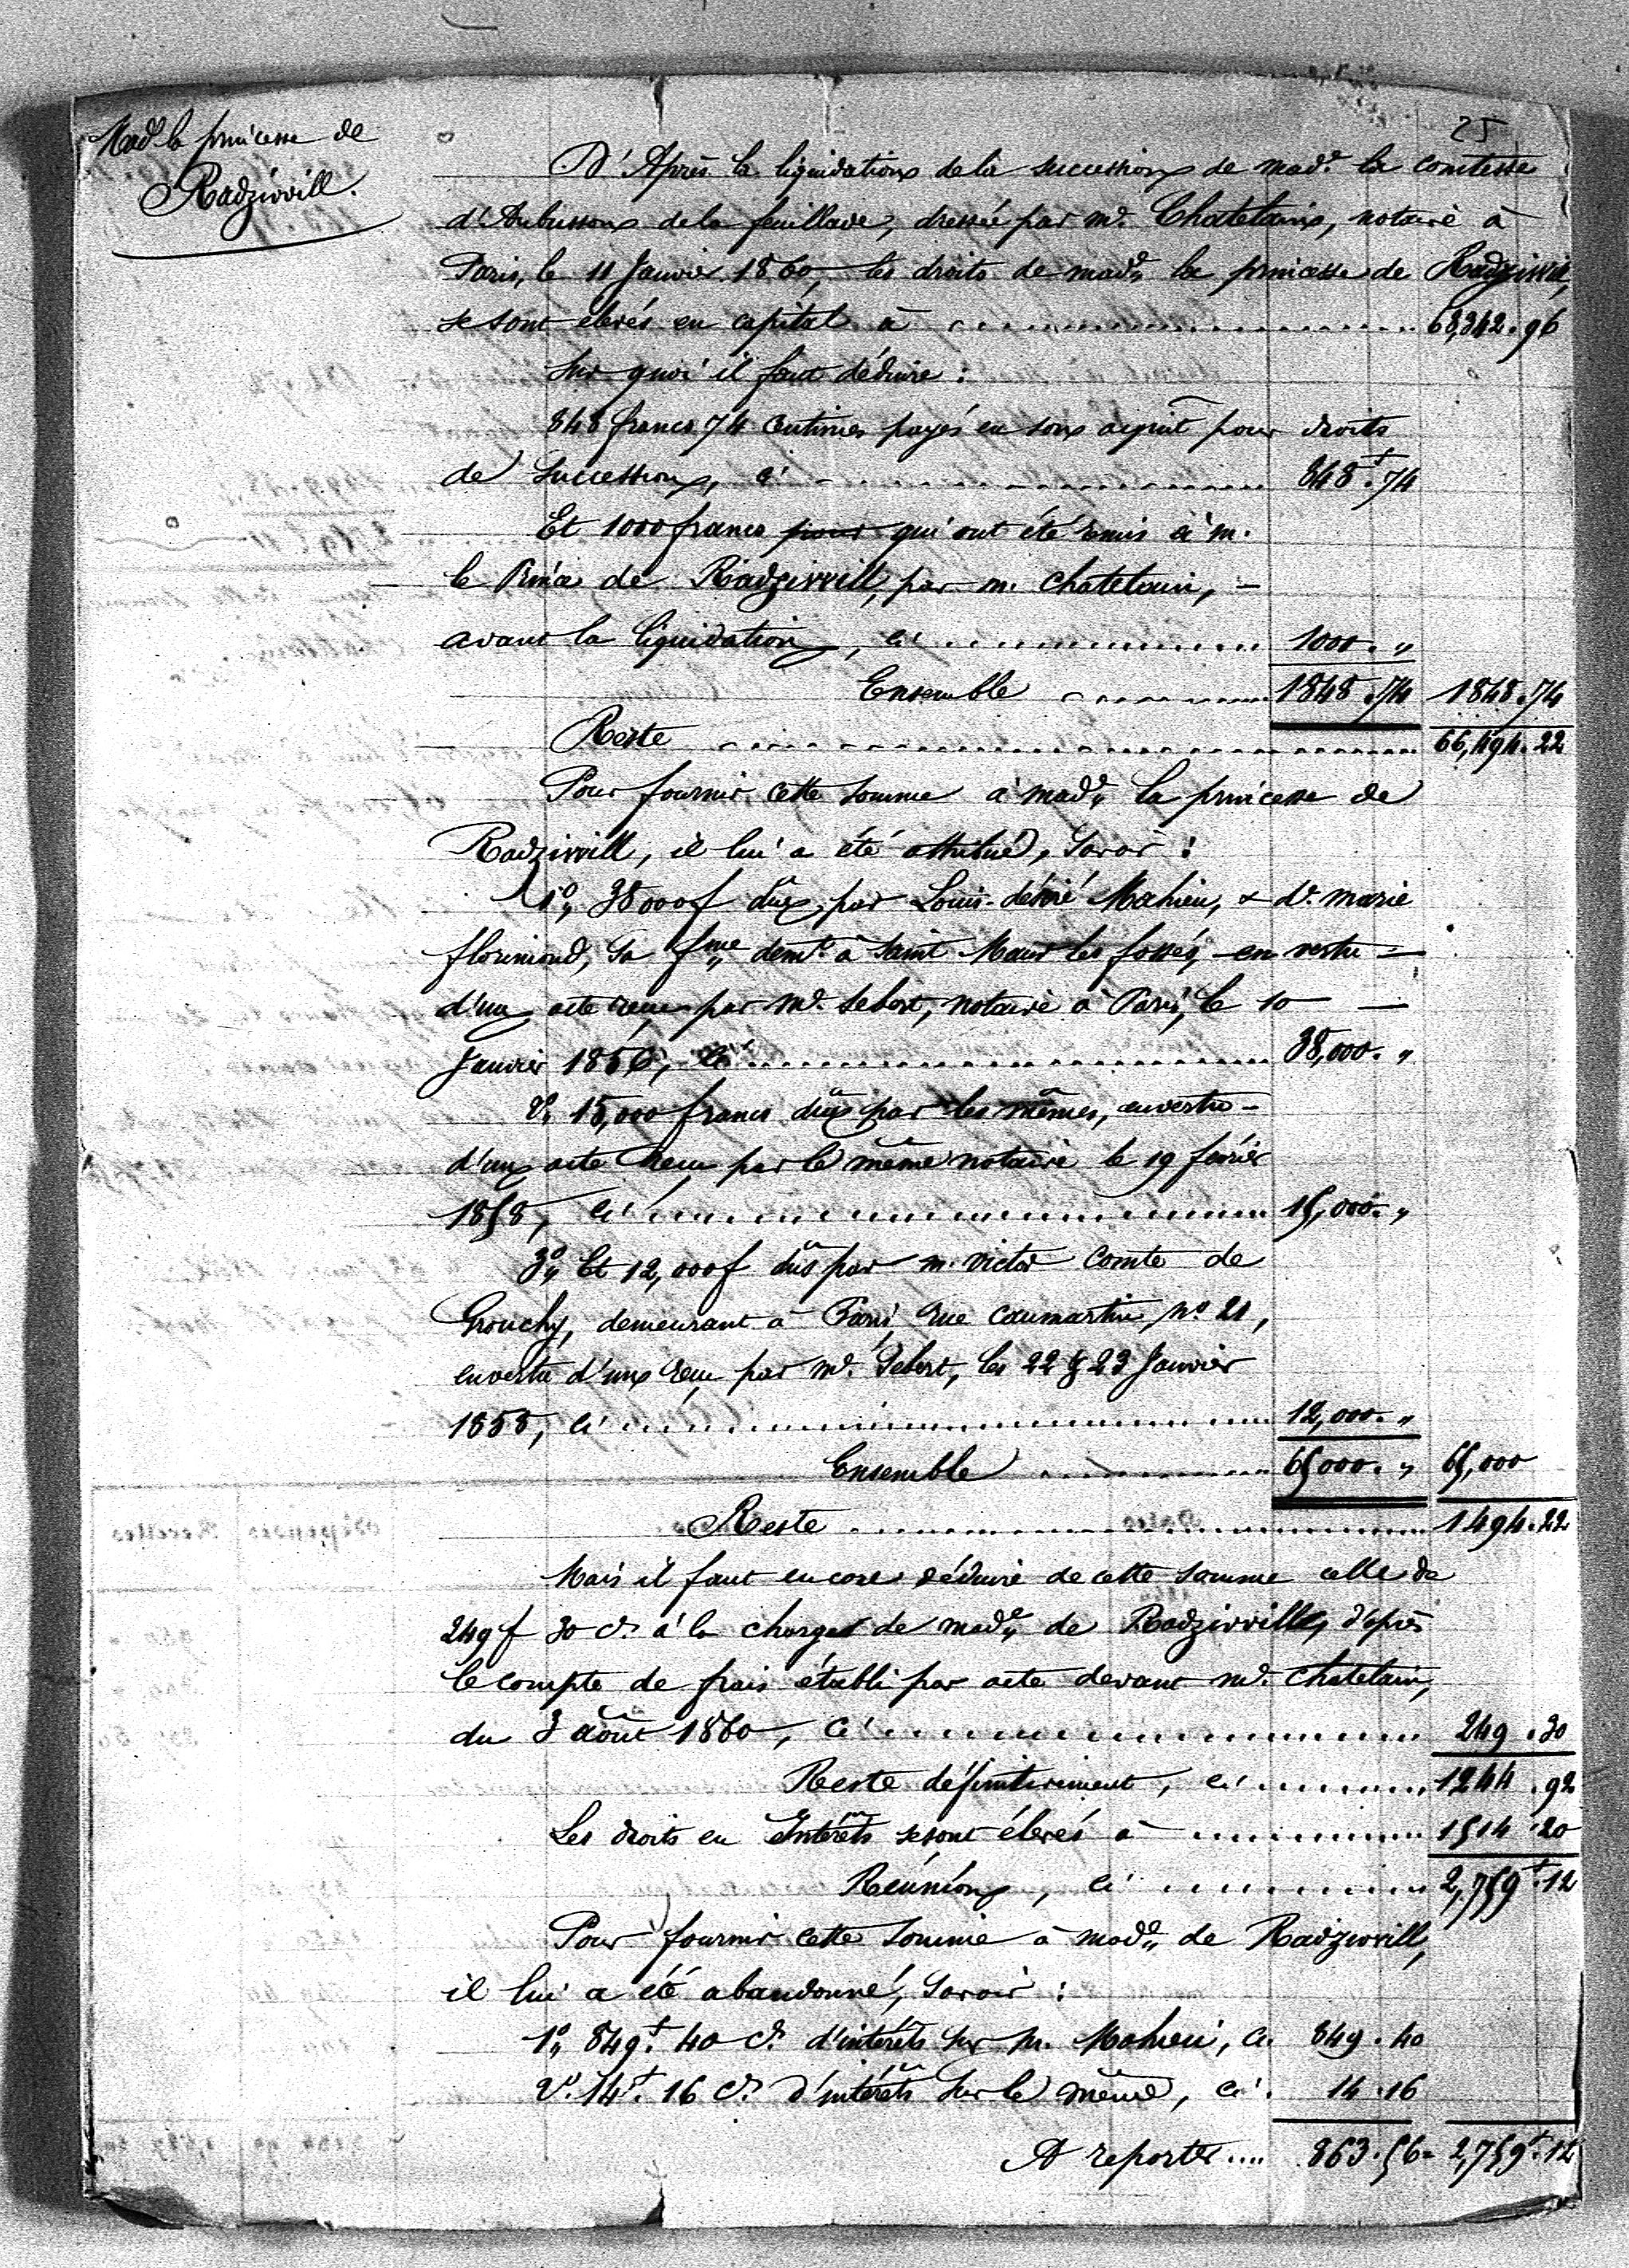 25
Mad.e la princesse de
Radziwill.
D'Après la liquidation de la succession de mad.e la comtesse
d'Aubusson de la feuillade, dressée par me. Chatelain, notaire à
Paris, le 11 Janvier 1860, les droits de made. la princesse de Radziwill,
se sont élevés en capital à ........ 68,342.96
Sur quoi il faut déduire :
848 francs 74 centimes payés en son acquit pour droits
de succession, ci ........ 848f.74
Et 1000 francs pour qui ont été remis à m.
le Prince de Radziwill, par m. Chatelain, -
avant la liquidation, ci ........ 1000. "
Ensemble ........ 1848.74 1848.74
Reste ........ 66,494.22
Pour fournir cette somme à made. la princesse de
Radziwill, il lui a été attribué, Savoir :
1o., 38000f dûs par Louis-désiré Mahieu, & de. marie
florimond, sa fme. demt. à Saint Maur les fossés, en vertu =
d'un acte reçu par me. Sebert, notaire à Paris, le 10 —
Janvier 1856, ci ........ 38,000. "
2o. 15,000 francs dûs par les mêmes, en vertu -
d'un acte reçu par le même notaire le 19 février
1858, ci ........ 15,000. "
3o., Et 12,000f dûs par m. victor comte de
Grouchy, demeurant à Paris, rue caumartin, no. 21,
en vertu d'un reçu par me. Sebert, les 22 & 23 Janvier
1858, ci ........ 12,000. "
Ensemble ........ 65,000. " 65,000
Reste ........ 1494.22
Mais il faut encore déduire de cette somme celle de
249f 30 c. à la charge de made. de Radziwill, d'après
le compte de frais établi par acte devant me. Chatelain,
du 3 août 1860, ci ........ 249.30
Reste définitivement, ci ........ 1244.92
Les droits en Intérêts se sont élevés à ........ 1514.20
Réunion, ci ........ 2,759f.12
Pour fournir cette somme à made. de Radziwill,
il lui a été abandonné, Savoir :
1o., 849f. 40 c. d'intérêts sur m. Mahieu, ci. 849.40
2o. 14f. 16 c. d'intérêts sur le même, ci. 14.16
A reporter .... 863.56 2,759f.12